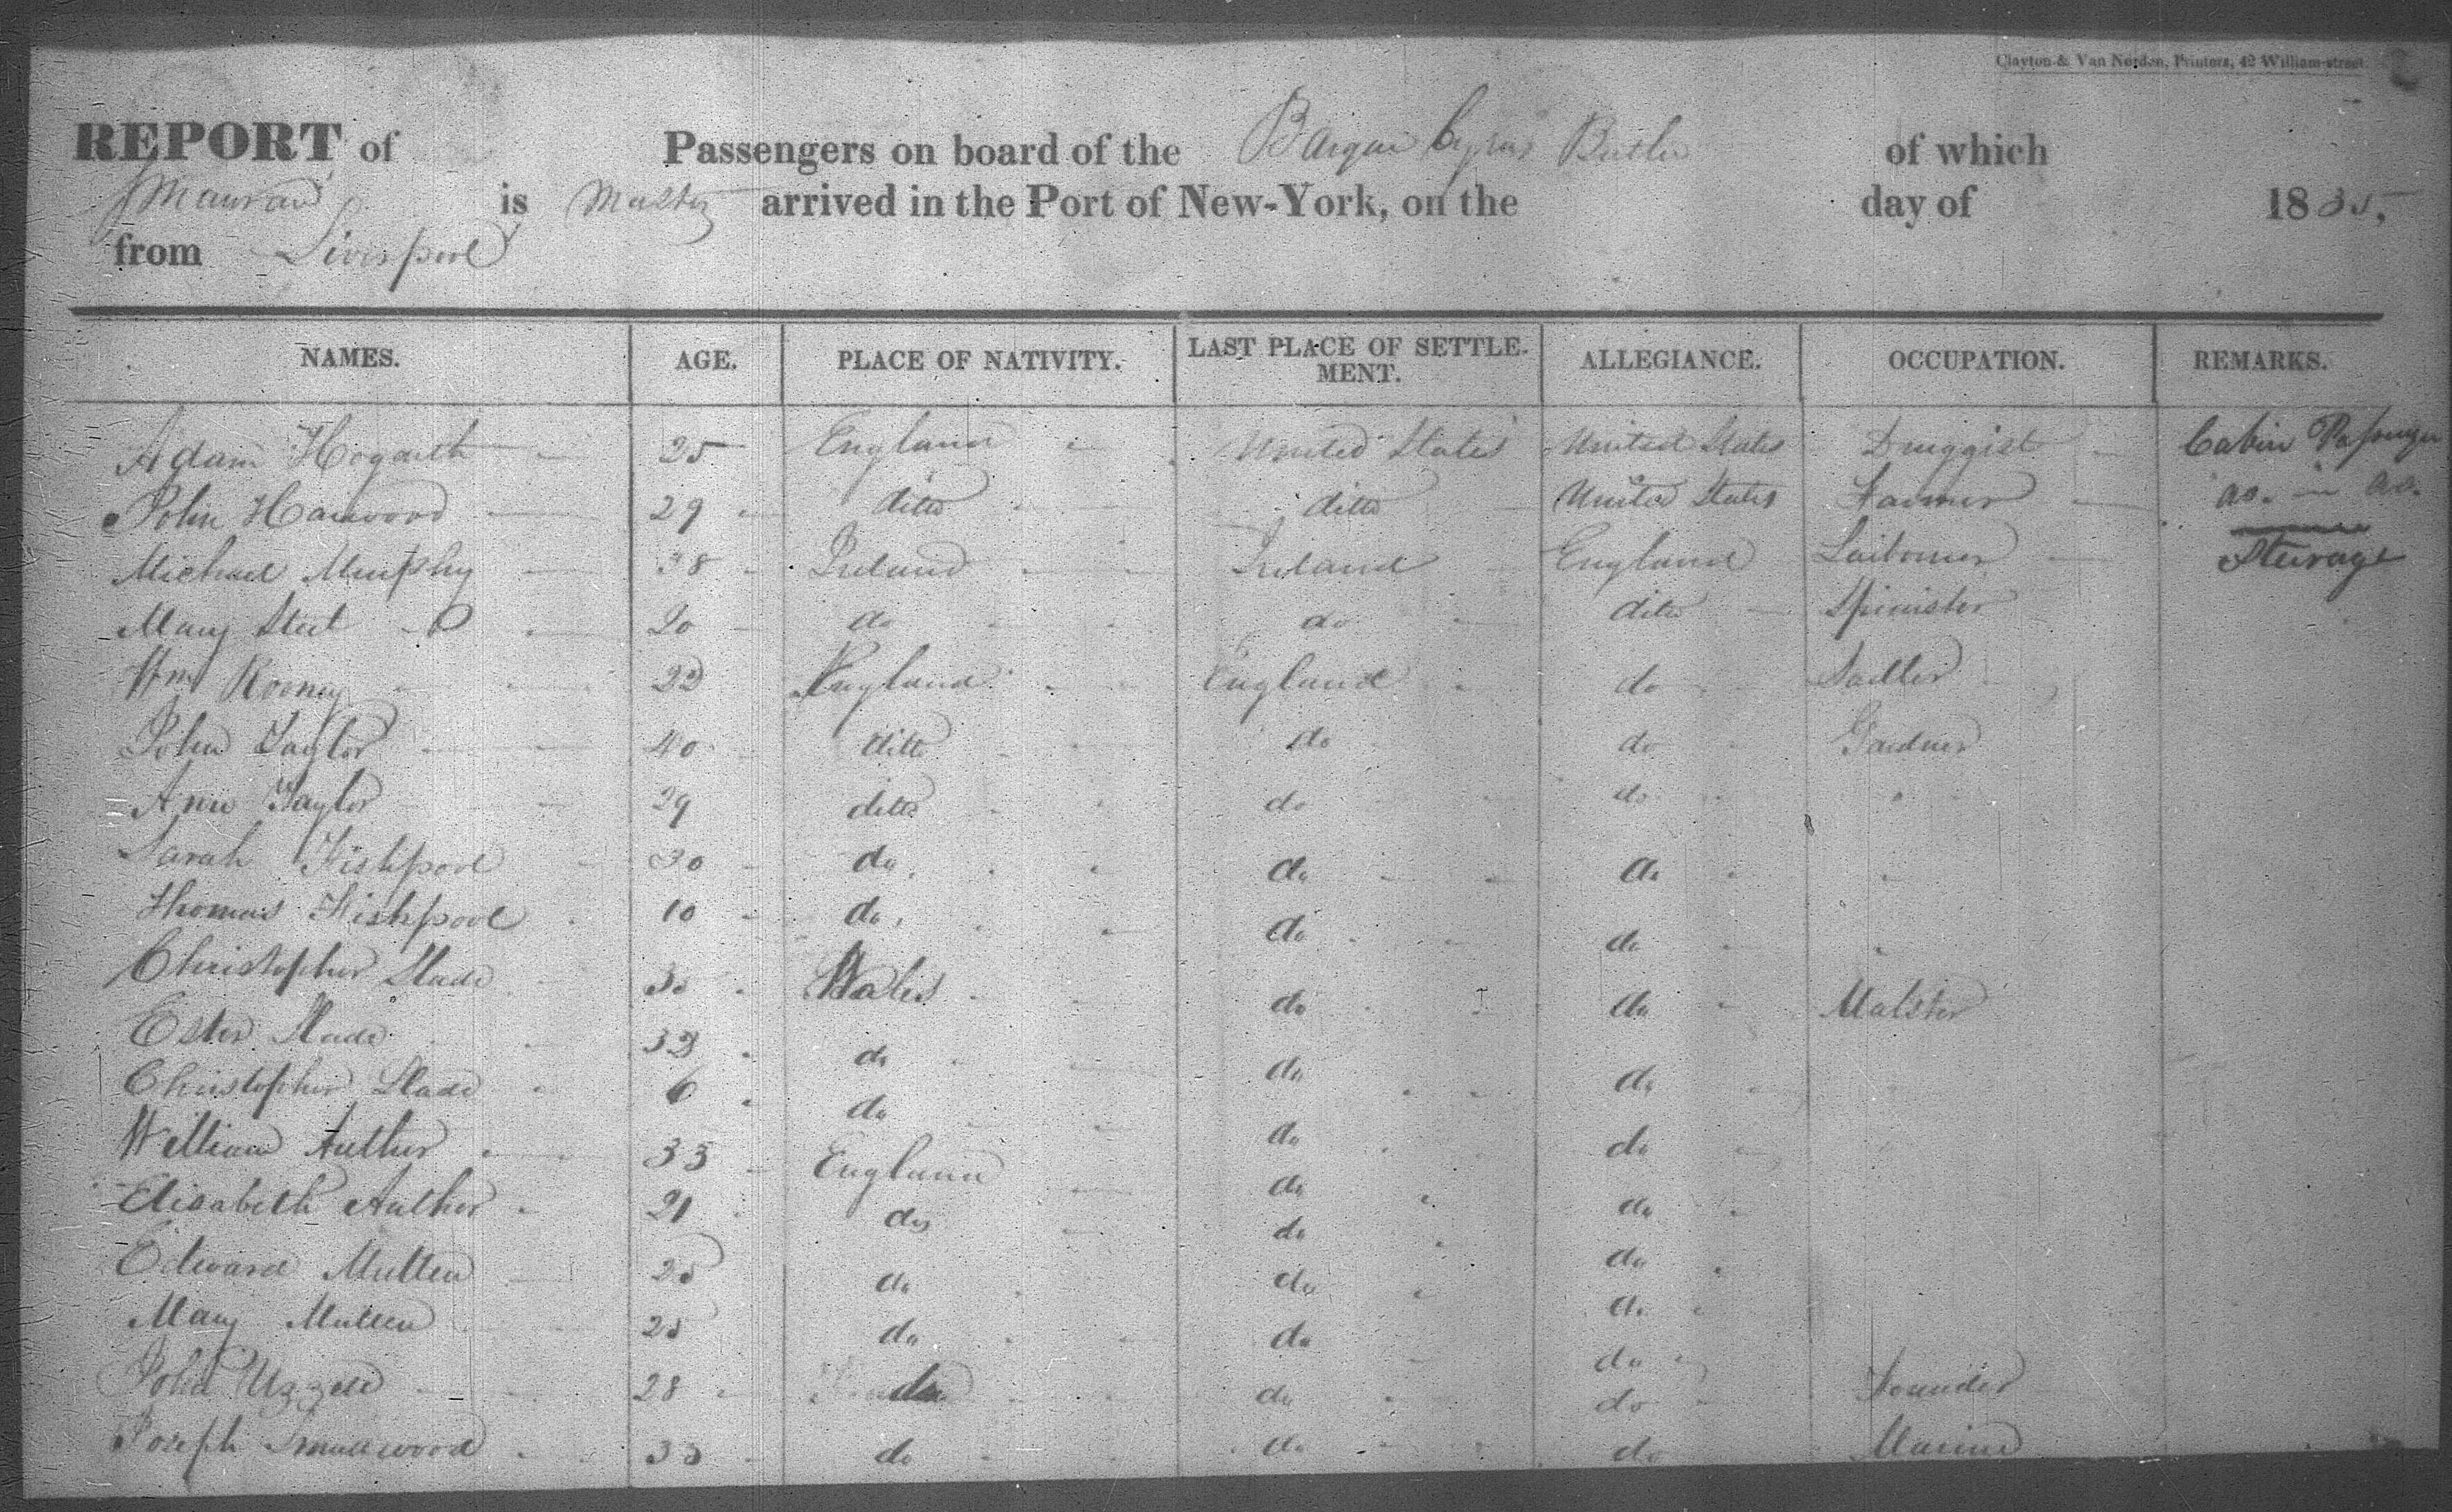 Clayton & Van Norden, Printers, 42 William-street.
REPORT of Passengers on board of the Barque Cyrus Butler of which
Mauran is Master arrived in the Port of New-York, on the day of 1835,
from Liverpool
NAMES. AGE. PLACE OF NATIVITY. LAST PLACE OF SETTLE- ALLEGIANCE. OCCUPATION. REMARKS.
MENT.
Adam Hogarth 25 England United States United States Druggist Cabin Passenger
John Harwood 29 ditto ditto United States Farmer do. do.
Michael Murphy 38 Ireland Ireland England Laibourer Sterage
Mary 20 do do ditto Spinister
Wm Rooney 22 England England do Sadler
John Taylor 40 ditto do do Gardner
Ann Taylor 29 ditto do do
Sarah Fishpool 30 do do do
Thomas Fishpool 10 do do do
Christopher Slade 30 Wales do do Malster
Ester Slade 32 do do do
Christopher Slade 6 do do do
William Auther 33 England do do
Elisabeth Auther 21 do do do
Edward Mullen 25 do do do
Mary Mullen 25 do do do
John Uzzell 28 do do do Founder
Joseph Smallwood 35 do do do